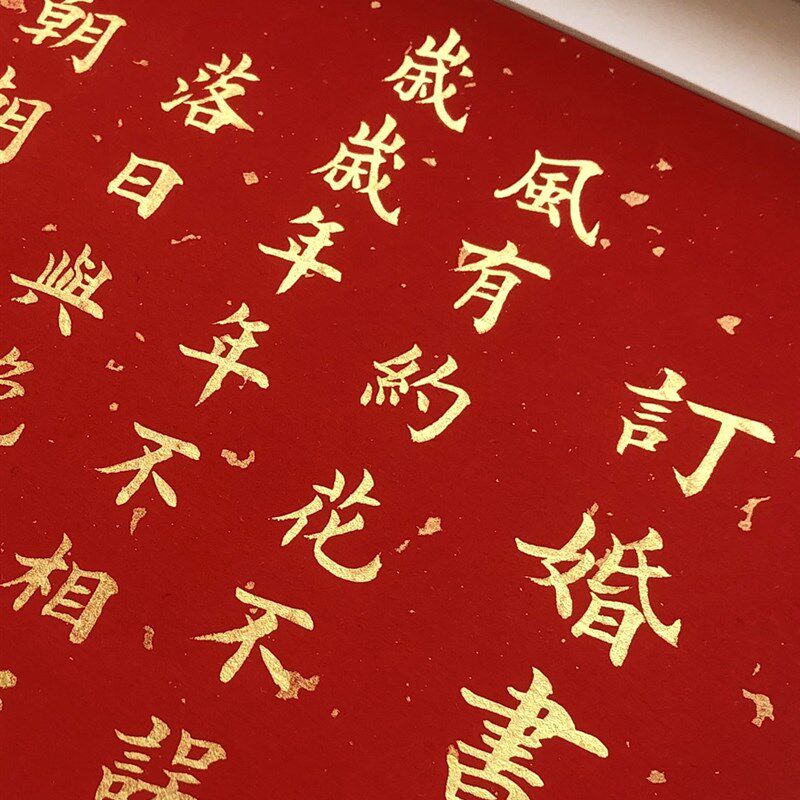 訂婚書
風有約花不誤
歲歲年年不相
落日與
朝朝